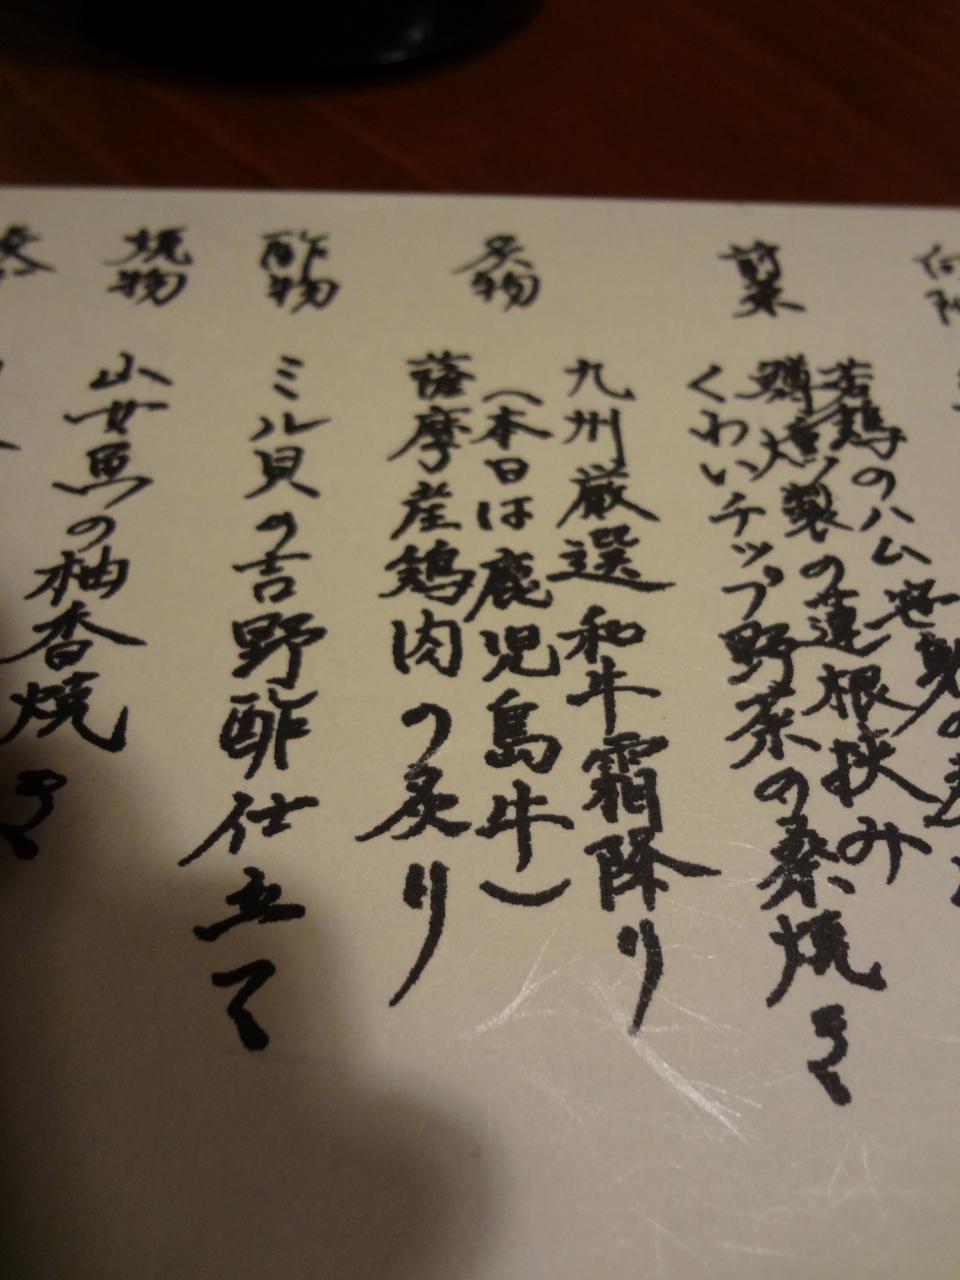 前菜
若鶏のハム
鱒燻製の蓮根挟み
くわいチップ野菜の桑焼き
炙物
九州厳選和牛霜降り
(本日は鹿児島牛)
薩摩産鶏肉の炙り
酢物
ミル貝の吉野酢仕立て
焼物
山女魚の柚香焼き